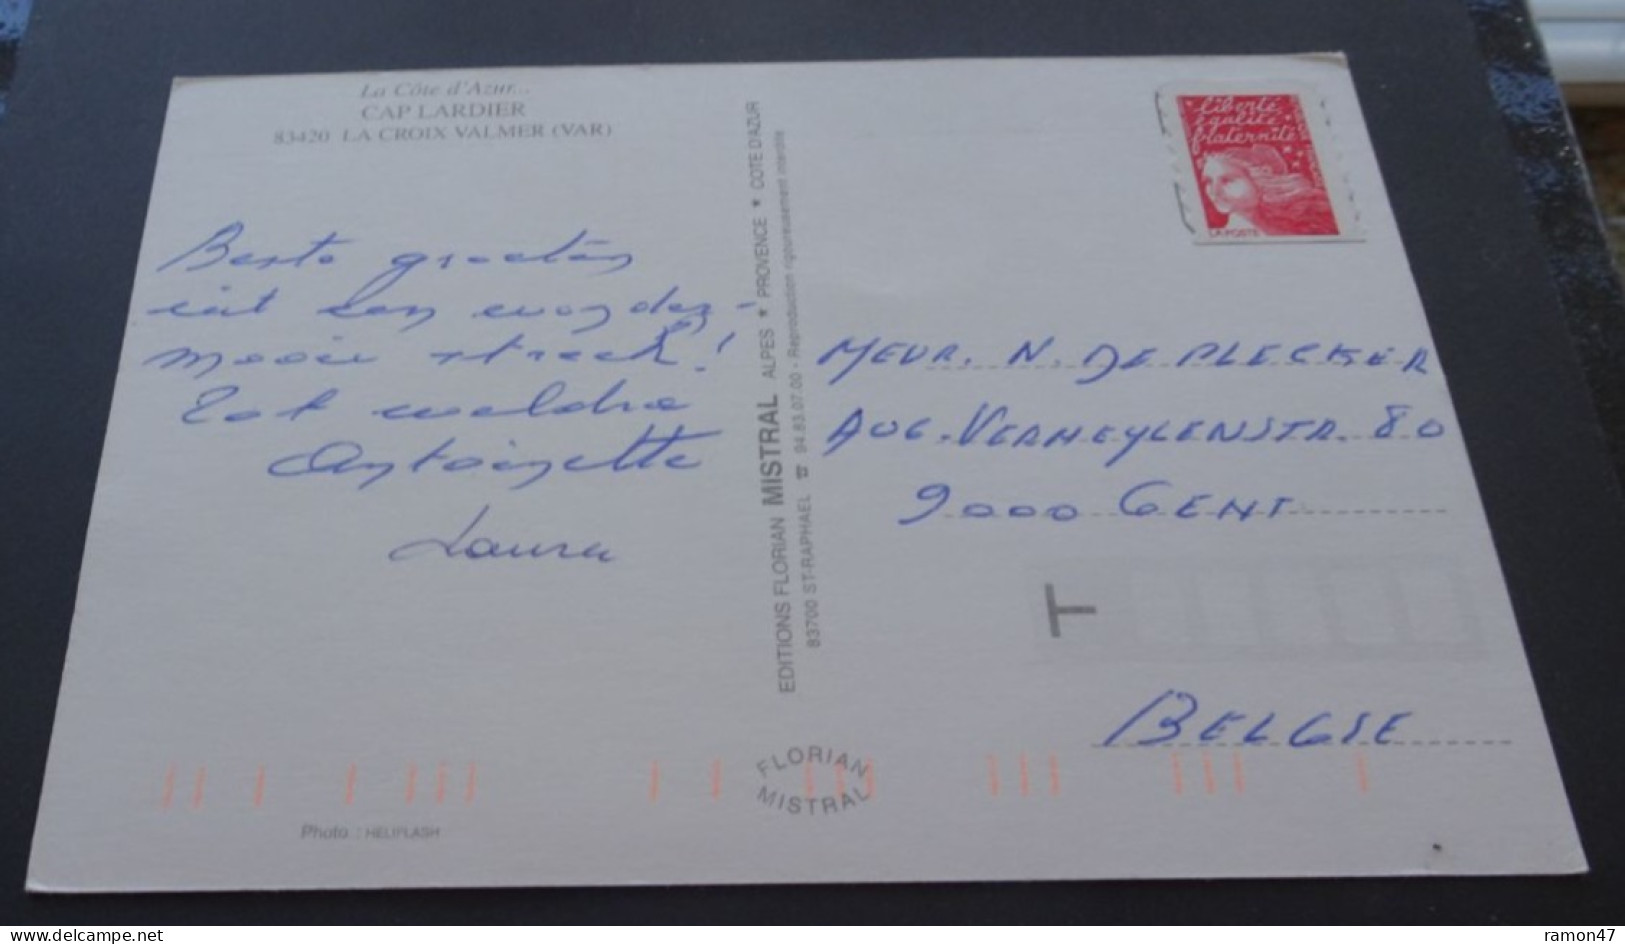 La Côte d'Azur...
CAP LARDIER
83420 LA CROIX VALMER (VAR)
Beste groeten
uit een wonder-
mooie streek!
Tot weldra
Antoinette
Laura
EDITIONS FLORIAN MISTRAL ALPES * PROVENCE * COTE D'AZUR
83700 ST-RAPHAEL ☎ 94.83.07.00 - Reproduction rigoureusement interdite
liberté
égalité
fraternité
LA POSTE
MEVR. N. DE PLECKER
AUG. VERMEYLENSTR. 80
9000 GENT
T
BELGIE
FLORIAN
MISTRAL
Photo : HELIFLASH
ramon47